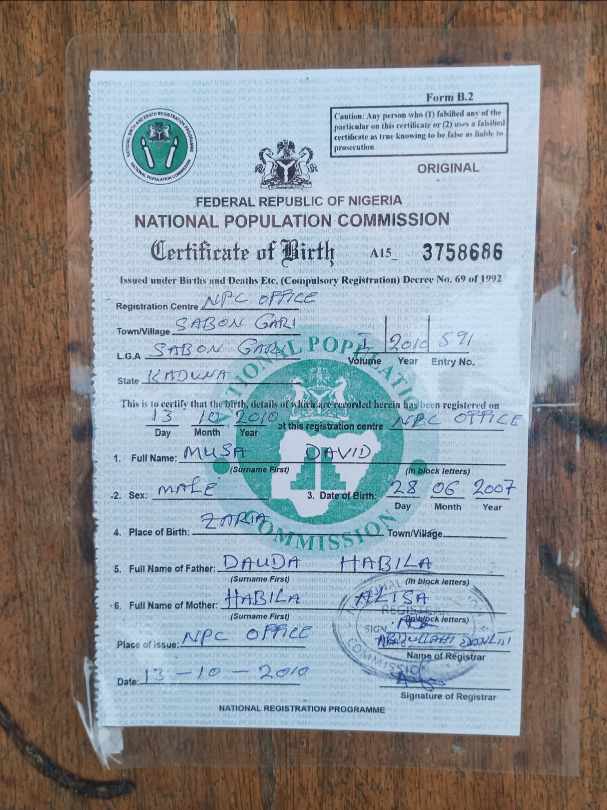 Form B.2
Caution: Any person who (1) falsified any of the
particular on this certificate or (2) uses a falsified
certificate as true knowing to be false is liable to
prosecution
NATIONAL BIRTH AND DEATH REGISTRATION PROGRAMME
NATIONAL POPULATION COMMISSION
ORIGINAL
FEDERAL REPUBLIC OF NIGERIA
NATIONAL POPULATION COMMISSION
Certificate of Birth A15_ 3758686
Issued under Births and Deaths Etc. (Compulsory Registration) Decree No. 69 of 1992
Registration Centre NPC OFFICE
Town/Village SABON GARI
L.G.A SABON GARI I 2010 591
Volume Year Entry No.
State KADUNA
NATIONAL POPULATION COMMISSION
This is to certify that the birth, details of which are recorded herein has been registered on
13 10 2010 at this registration centre NPC OFFICE
Day Month Year
1. Full Name: MUSA DAVID
(Surname First) (in block letters)
2. Sex: MALE 3. Date of Birth: 28 06 2007
Day Month Year
4. Place of Birth: ZARIA Town/Village
5. Full Name of Father: DAUDA HABILA
(Surname First) (in block letters)
6. Full Name of Mother: HABILA ALISA
(Surname First) (in block letters)
Place of issue: NPC OFFICE ABDULLAHI
Name of Registrar
Date: 13-10-2010
Signature of Registrar
NATIONAL REGISTRATION PROGRAMME